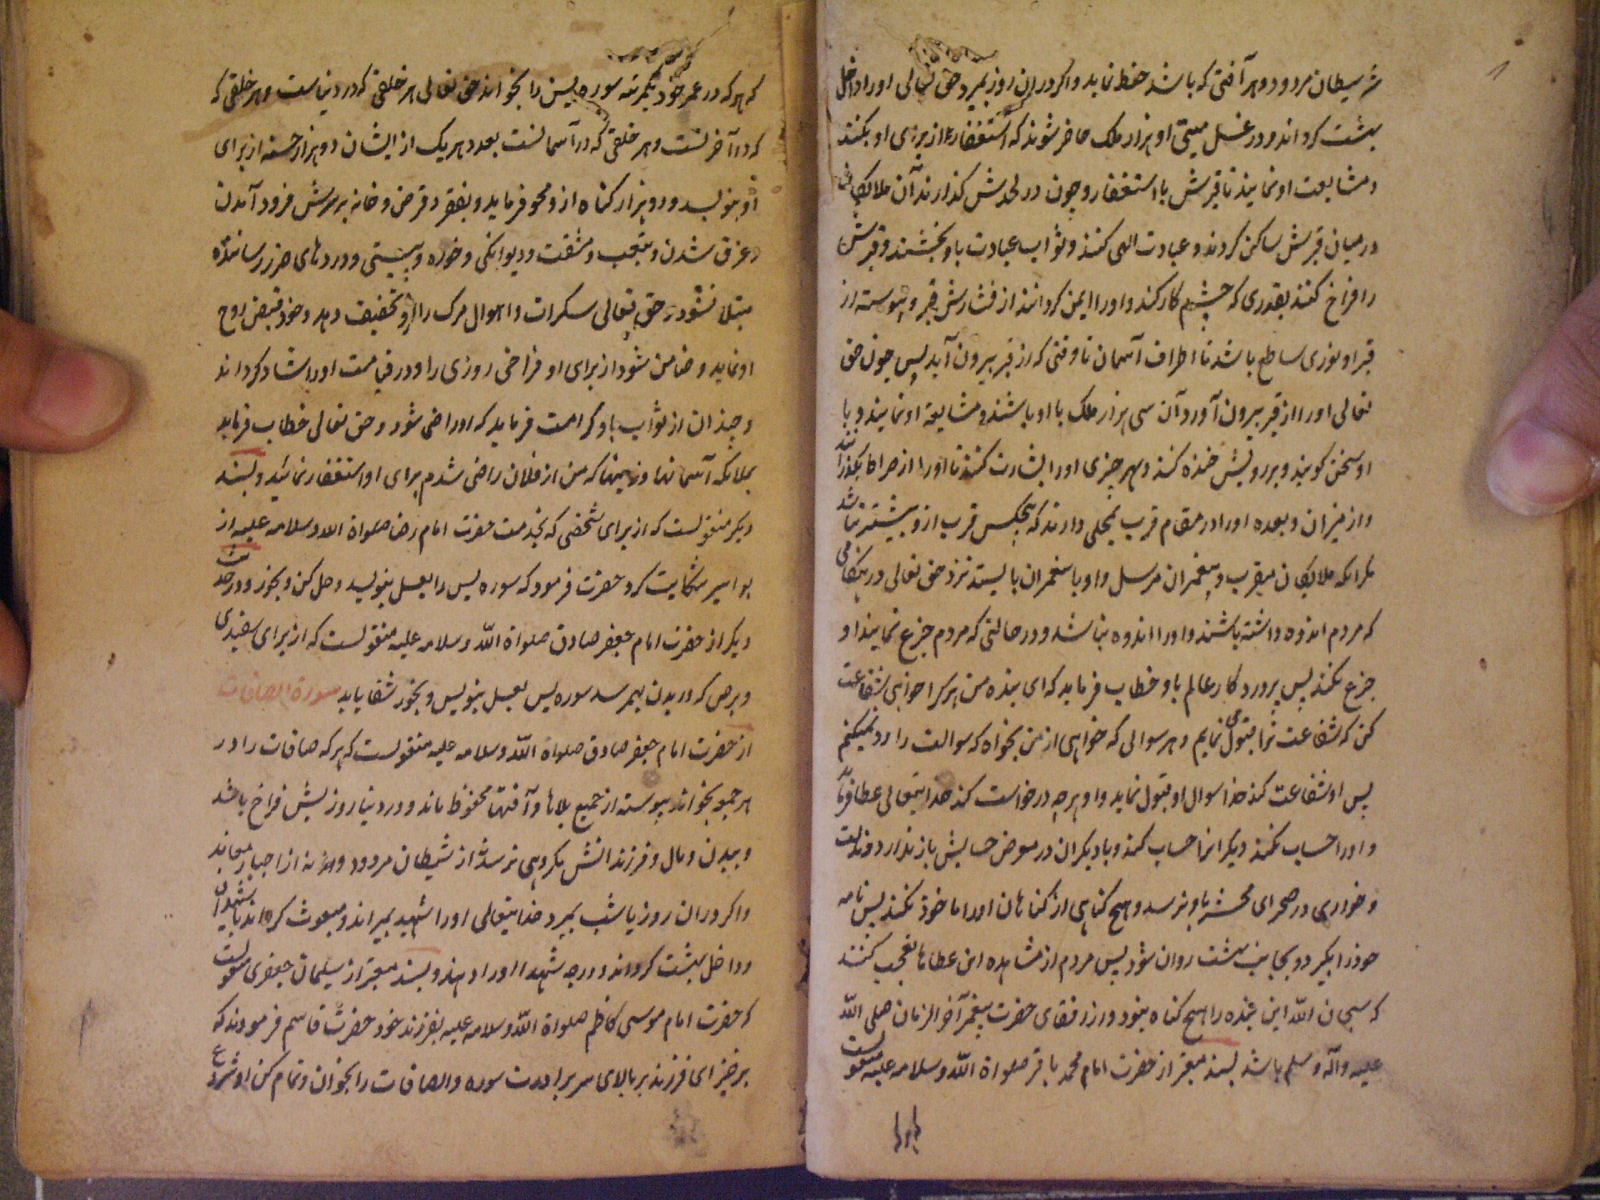 شر شیطان مردود و هر آفتی که باشد حفظ نماید و اگر در ان روز بمیرد حق تعالی او را داخل
بهشت گرداند و در غسل میتی او هزار ملک حاضر شوند که استغفار از برای او بکنند
و مشایعت او نمایند تا قبرش با استغفار و چون در لحدش گذارند آن ملایکه
در میان قبرش ساکن گردند و عبادت الهی کنند و ثواب عبادت باو بخشند و قبرش
را فراخ کنند بقدری که چشم کار کند و او را ایمن گردانند از فشارش قبر و پیوسته از
قبر او نوری ساطع باشد تا اطراف آسمان تا وقتی که از قبر بیرون آید پس چون حق
تعالی او را از قبر بیرون آورد آن سی هزار ملک با او باشند و مشایعة او نمایند و با
او سخن گویند و بر رویش خنده کنند و بهر چیزی او را بشارت کنند تا او را از صراط بگذرانند
و از میزان و بعده او را در مقام قرب بمحلی دارند که هیچکس قرب از و بیشتر نباشد
مگر انکه ملایکان مقرب و پیغمبران مرسل و او با پیغمبران بایستد نزد حق تعالی در هنگامی
که مردم اندوه داشته باشند و او را اندوه نباشد و در حالتی که مردم جزع نمایند او
جزع نکند پس پروردگار عالم باو خطاب فرماید که ای بنده من هر کرا خواهی شفاعت
کن که شفاعت ترا قبول می نمایم و هر سوالی که خواهی از من بخواه که سوالت را رد نمیکنم
پس او شفاعت کند خدا سوال او قبول نماید و او هر چه درخواست کند خدایتعالی عطا فرماید
و او را حساب نکند دیگرانرا حساب کند و با دیگران در معرض حسابش باز ندارد و مذلت
و خواری در صحرای محشر باو نرسد و هیچ گناهی از گناهان او را ماخوذ نکند پس نامه
خود را بگیرد و بجانب بهشت روان شود پس مردم از مشاهده این عطاها تعجب کنند
که سبحان الله این بنده را هیچ گناه نبود و از رفقای حضرت پیغمبر آخر الزمان صلی الله
علیه و آله و سلم باشد بسند معتبر از حضرت امام محمد باقر صلواة الله و سلامه علیه منقولست
که هر که در عمر خود یکمرتبه سوره یس را بخواند حق تعالی هر خلقی که در دنیاست و هر خلقی که
که در آخرتست و هر خلقی که در آسمانست بعدد هریک از ایشان دو هزار حسنه از برای
او بنویسد و دو هزار گناه از و محو فرماید و بفقر و قرض و خانه بر سرش فرود آمدن
و غرق شدن و بتعب و مشقت و دیوانگی و خوره و پیستی و دردهای ضرر رساننده
مبتلا نشود حق تعالی سکرات و اهوال مرگ را از و تخفیف دهد و خود قبض روح
او نماید و ضامن شود از برای او فراخی روزی را و در قیامت او را شاد گرداند
و چندان از ثواب باو کرامت فرماید که او راضی شود و حق تعالی خطاب فرماید
بملائکه آسمانها و زمینها که من از فلان راضی شدم برای او استغفار نمائید و بسند
دیگر منقولست که از برای شخصی که بخدمت حضرت امام رضا صلواة الله و سلامه علیه از
بواسیر شکایت کرد حضرت فرمود که سوره یس را بعسل بنویسد و حل کن و بخور و در حدیث
دیگر از حضرت امام جعفر صادق صلواة الله و سلامه علیه منقولست که از برای سفیدی
و برص که در بدن بهمرسد سوره یس بعسل بنویس و بخور شفا یابد سورة الصافات
از حضرت امام جعفر صادق صلواة الله و سلامه علیه منقولست که هر که صافات را در
هر جمعه بخواند پیوسته از جمیع بلاها و آفتها محفوظ ماند و در دنیا روزیش فراخ باشد
و ببدن و مال و فرزندانش مکروهی نرسد از شیطان مردود و هر از جبار معاند
و اگر در ان روز یا شب بمیرد خدایتعالی او را شهید بمیراند و مبعوث گرداند با شهیدان
و داخل بهشت گرداند و درجه شهدا او را دهند و بسند معتبر از سلیمان جعفری منقولست
که حضرت امام موسی کاظم صلواة الله و سلامه علیه بفرزند خود حضرت قاسم فرمودند که
برخیز ای فرزند بر بالای سر برادرت سوره والصافات را بخوان و تمام کن او شروع